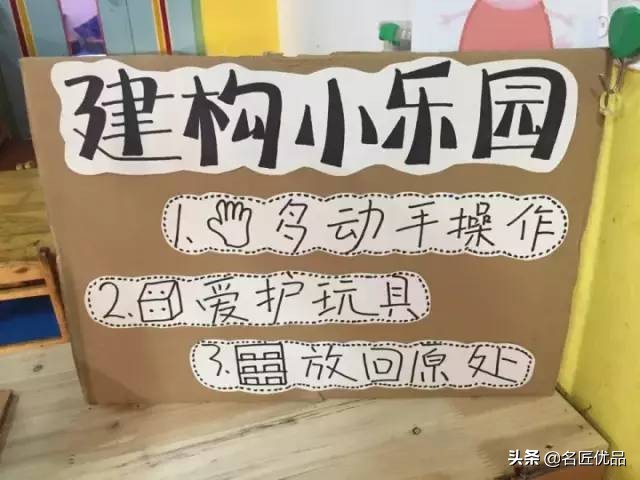 建构小乐园
1.多动手操作
2.爱护玩具
3.放回原处
头条 @名匠优品